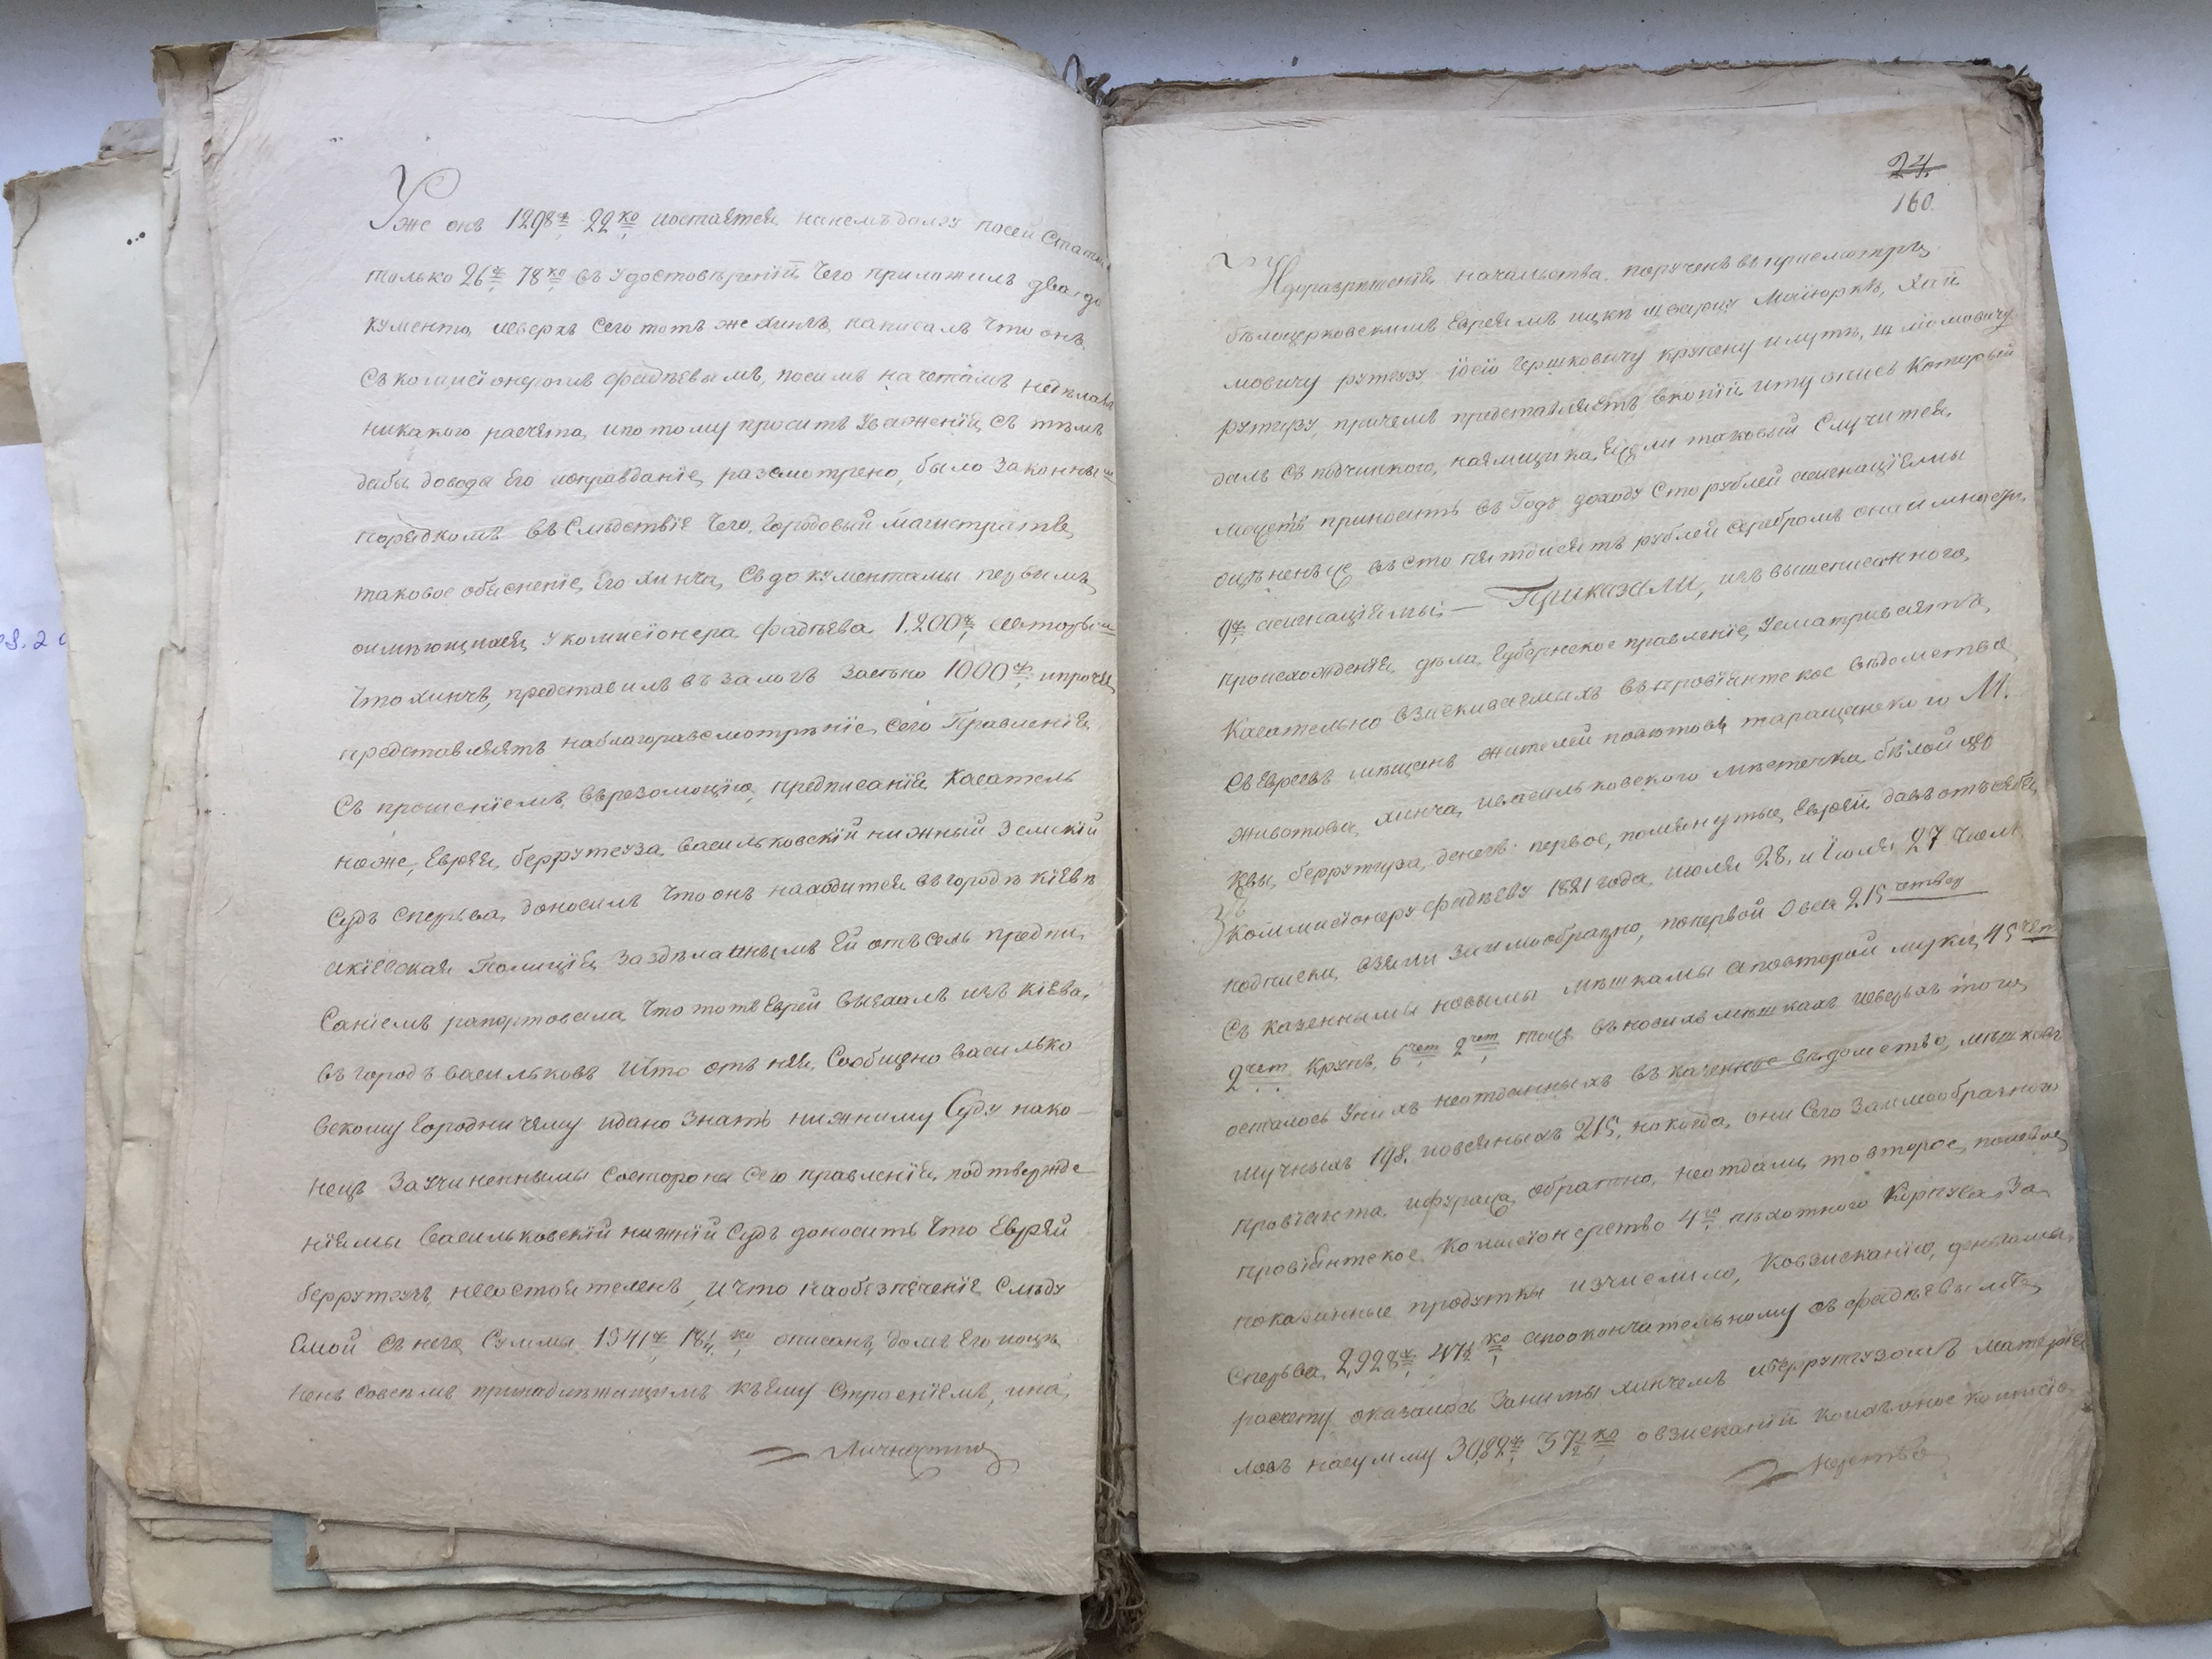 Уже онъ 1298 р. 22 ко иостается, нанемъ долгу посей Статьи
только 26 р. 78 ко въ удостовѣренїи чего приложилъ два до
кумента, исверхъ сего тотъ же хинчъ написалъ что онъ
съ комисїонеромъ Фадѣевымъ, посимъ начетамъ недѣлалъ
никакого расчета, ипотому проситъ уваженїя, съ тѣмъ
дабы доводы Его иоправданїе, разсмотрено, было Законнымъ
порядкомъ въ Следствїе Чего, Городовый Магистратъ
таковое обясненїе, Его хинча, Съ документамы первымъ
оимѣющихся, укомисїонера Фадѣева 1.200 р. авторым
Что хинчъ, представилъ въ залогъ засѣно 1000 р. ипрочея
представляетъ наблагоразсмотрѣнїе, сего Правленїя
Съ прошенїемъ, въ резолюцїю, предписанїя, касатель
ноже, Еврея, беррутеуза, васильковскїй нижный Земскїй
Судъ сперьва, доносилъ что онъ находится въ городѣ кїевѣ
акїевская Полицїя, Заздѣланнымъ Ей отъ сель предпи,
Санїемъ рапортовала, Что тотъ Еврей выехалъ изъ кїева,
въ городъ васильковъ Ичто отъ нея, Сообщено Василько
вскому городничему идано знать нижнему Суду нако-
нецъ Заучиненнымы Состороны Сего правленїя, подтвержде
нїямы васильковскїй нижнїй Судъ доноситъ Что Еврей
беррутеузъ, несостоятеленъ, ичто наобезпеченїе Следу
Емой съ него, Суммы 1341 р. 18¼ ко описанъ, домъ Его иоцѣ,
ненъ совсемъ принадлежащимъ къ ему Строенїемъ, ина,
24.
160.
Идоразрѣшенїя, начальства порученъ въ присмотръ,
бѣлоцерковскимъ Евреямъ ицкѣ шварцу Маїоркѣ, хаи
мовичу рутеузу їосїю Гершковичу
рутеузу, причемъ представляетъ вкопїи иту опись Который
можетъ приносить въ Годъ доходу Сто рублей асигнацїямы
оцѣненъ въ сто пятдисятъ рублей серебромъ
асигнацїямы. — Приказали, изъ вышеписанного,
происхожденїя, дѣла, Губернское правленїе, усматриваетъ,
касательно взыскиваемыхъ въ провїантское вѣдометво
Съ Евреевъ мещанъ жителей повѣтовъ таращанского М.
животова, хинча, ивасильковского местечка, бѣлой цер
квы, беррутеуза, денегъ: первое, помянутые, Евреи давъ отъ себя,
Коммисїонеру Фадѣеву 1821 года, июля 28. и Їюля 27 числ
подписки, взяли заимообразно, попервой Овса 215 четвер
Съ казеннымы новымы мѣшкамы аповторой муки, 45 чет
2 чет Крупъ, 6 чет 2 чет тоже въ новыхъ мѣшкахъ исверхъ того,
осталось унихъ неотданныхъ въ казенное вѣдомство, мѣшковъ
мучныхъ 198. иовсяныхъ 215, но когда, они Сего Заимообразного
провїанта ифуража, обратно, неотдали, то второе, полевое,
провїантское Комисїонерство 4го пѣхотного Корпуса, За
показанные продукты изчислило, Ковзысканїю, деньгамы
Сперьва, 2,928 р. 47½ ко апоокончательному съ Фадѣевымъ,
расчету оказалось Занимы хинчемъ иберрутеузомъ матерїя
ловъ насумму 3022 р. 37½ ко овзысканїи коихъ оное комисїо